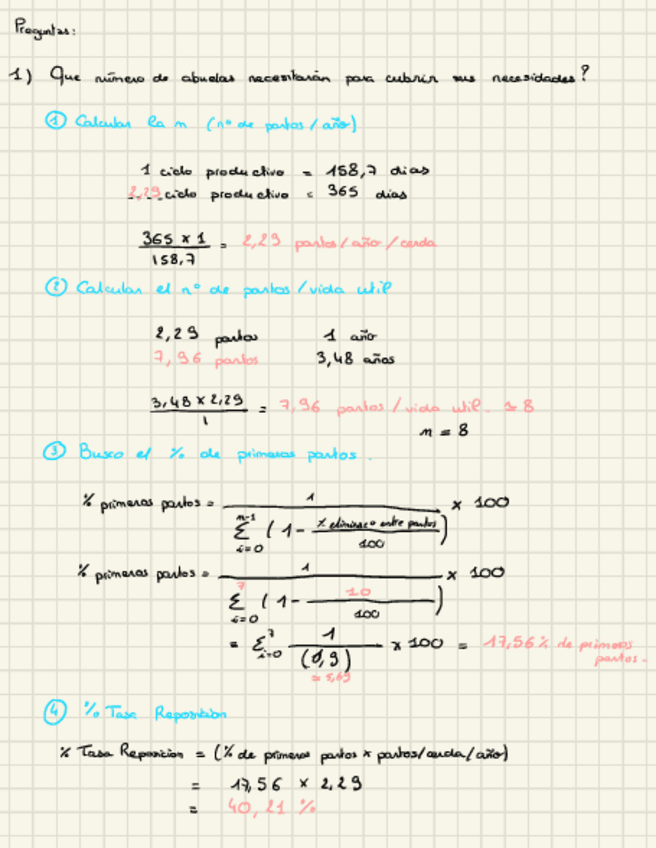 Preguntas:
1) Que número de abuelas necesitarán para cubrir sus necesidades?
① Calcular la n (nº de partos / año)
1 ciclo productivo = 158,7 dias
2,29 ciclo productivo = 365 dias
365 x 1 / 158,7 = 2,29 partos / año / cerda
② Calcular el nº de partos / vida util
2,29 partos 1 año
7,96 partos 3,48 años
3,48 x 2,29 / 1 = 7,96 partos / vida util. ≃ 8
n = 8
③ Busco el % de primeros partos.
% primeros partos = 1 / Σ i=0 n-1 (1 - % eliminac° entre partos / 100) x 100
% primeros partos = 1 / Σ i=0 7 (1 - 10 / 100) x 100
= Σ i=0 7 1 / (0,9) x 100 = 17,56 % de primeros partos.
= 5,69
④ % Tasa Reposicion
% Tasa Reposicion = (% de primeros partos x partos/cerda/año)
= 17,56 x 2,29
= 40,21 %